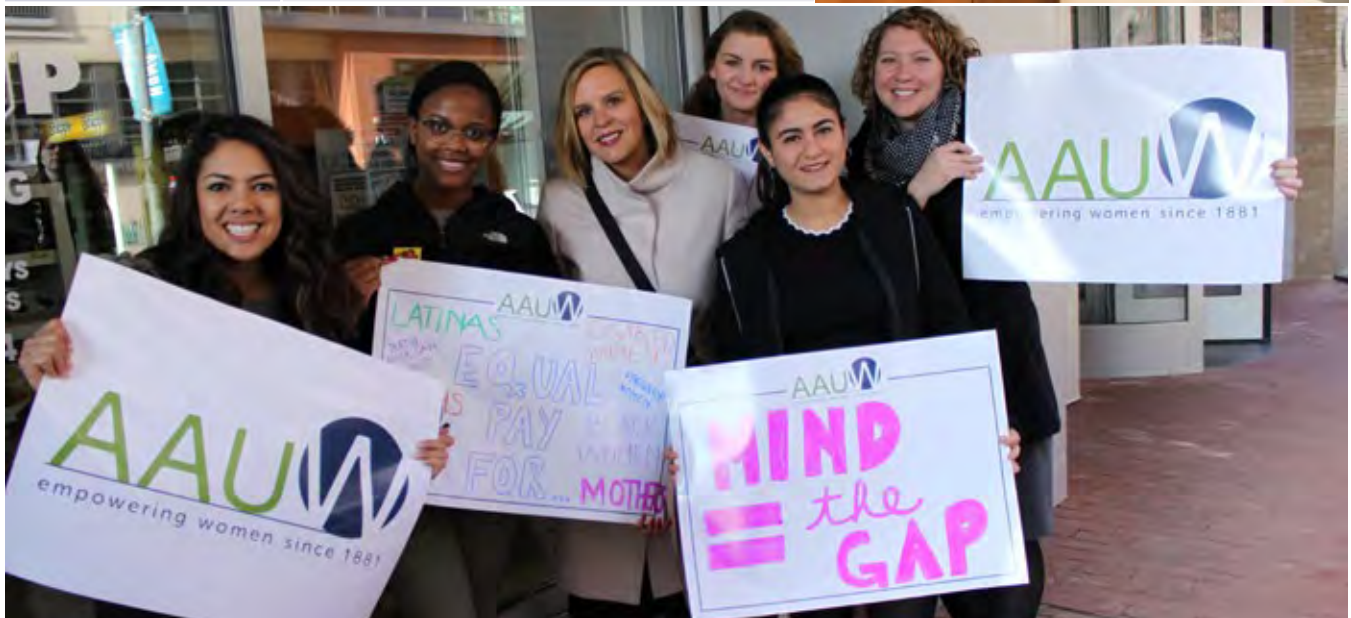 UP
G
YS
S
4
AAUW
empowering women since 1881
AAUW
LATINAS
EQUAL
PAY
FOR...
WOMEN
MOTHERS
AAUW
AAUW
MIND
= the
GAP
AAUW
empowering women since 1881